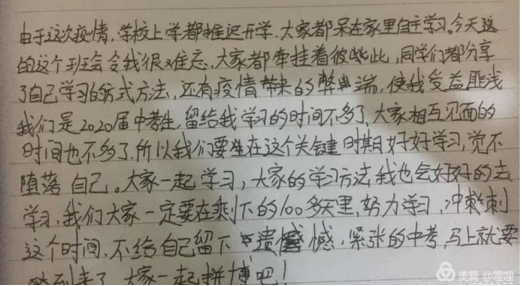 由于这次疫情,学校上学都推迟开学,大家都呆在家里自主学习。今天这
的这个班会令我很难忘,大家都牵挂着彼此些此,同学们都分享
了自己学习的方式方法,还有疫情带来的弊端,使我受益匪浅
我们是2020届中考生,留给我学习的时间不多了,大家相互见面的
时间也不多了,所以我们要在这个关键时期好好学习,觉不
堕落自己。大家一起学习,大家的学习方法我也会好好的去
学习,我们大家一定要在剩下的100多天里,努力学习,冲刺
这个时间,不给自己留下遗憾,紧张的中考,马上就要
到来了,大家一起拼搏吧!
美篇@哩哩